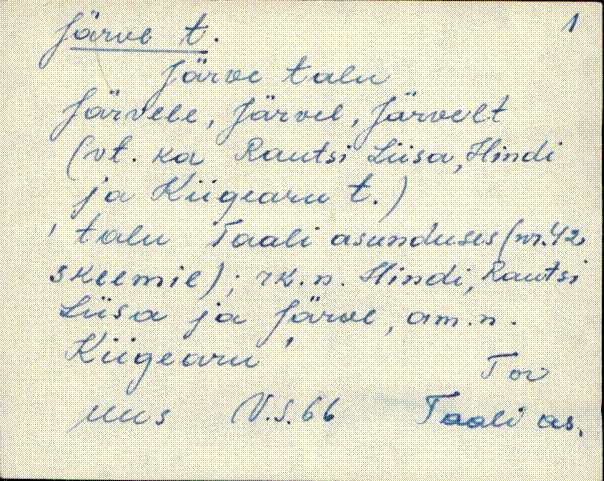 1
Järve t.
Järve talu
Järvele, Järvel, Järvelt
(vt. ka Rautsi Liisa, Hindi
ja Kiigearu t.)
' talu Taali asunduses (nr. 42
skeemil); rk. n. Hindi, Rautsi
Liisa ja Järve, am. n.
Kiigearu '
Tor
uus V.S. 66 Taali as.